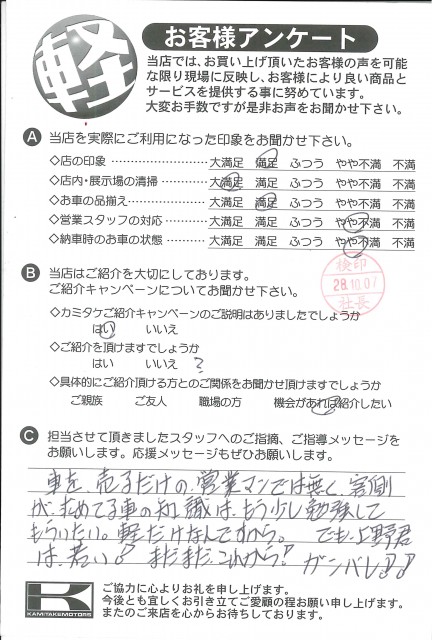 軽
お客様アンケート
当店では、お買い上げ頂いたお客様の声を可能
な限り現場に反映し、お客様により良い商品と
サービスを提供する事に努めています。
大変お手数ですが是非お声をお聞かせ下さい。
A 当店を実際にご利用になった印象をお聞かせ下さい。
◇店の印象 ……………………… 大満足 満足 ふつう やや不満 不満
◇店内・展示場の清掃 ………… 大満足 満足 ふつう やや不満 不満
◇お車の品揃え ………………… 大満足 満足 ふつう やや不満 不満
◇営業スタッフの対応 ………… 大満足 満足 ふつう やや不満 不満
◇納車時のお車の状態 ………… 大満足 満足 ふつう やや不満 不満
B 当店はご紹介を大切にしております。
ご紹介キャンペーンについてお聞かせ下さい。
検印
28.10.07
社長
◇カミタケご紹介キャンペーンのご説明はありましたでしょうか
はい いいえ
◇ご紹介を頂けますでしょうか
はい いいえ ?
◇具体的にご紹介頂ける方とのご関係をお聞かせ頂けますでしょうか
ご親族 ご友人 職場の方 機会があれば紹介したい
C 担当させて頂きましたスタッフへのご指摘、ご指導メッセージを
お願いします。応援メッセージもぜひお願いします。
車を、売るだけの、営業マンでは無く、客側
が、求めてる車の知識は、もう少し勉強して
もらいたい。軽だけなんですから。 でも、上野君
は、若い! まだまだ、これから! ガンバレ!!
K
KAMITAKEMOTORS
ご協力に心よりお礼を申し上げます。
今後とも宜しくお引き立てご愛顧の程お願い申し上げます。
またのご来店を心からお待ちしております。